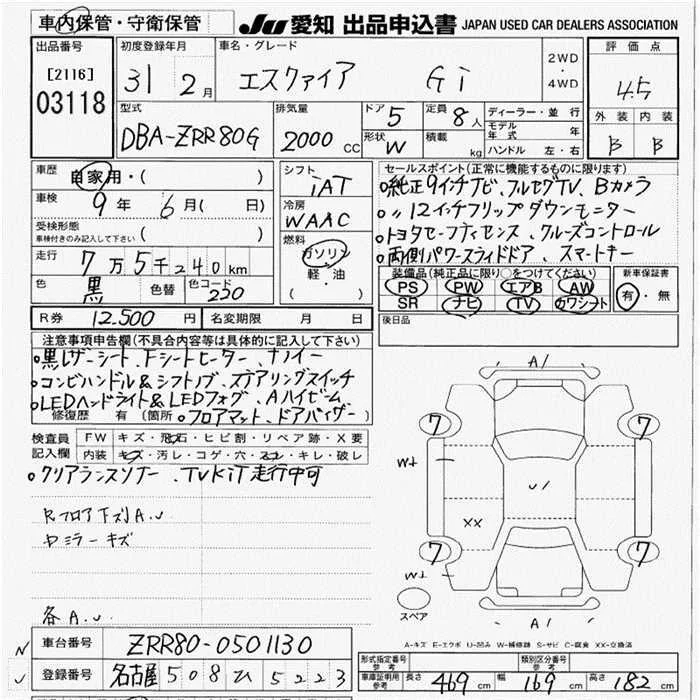 車内保管・守衛保管 JU 愛知 出品申込書 JAPAN USED CAR DEALERS ASSOCIATION
出品番号 初度登録年月 車名・グレード 2WD・4WD 評価点
[2116] 03118 31 2月 エスクァイア Gi 4.5
外装 内装
B B
型式 排気量 ドア 5 定員 8人 ディーラー・並行
DBA-ZRR80G 2000 CC 形状 W 積載 kg モデル年式 年
ハンドル 左・右
車歴 自家用・( ) シフト セールスポイント(正常に機能するものに限ります)
iAT 純正9インチナビ、フルセグTV、Bカメラ
車検 9年 6月( 日) 冷房 〃12インチフリップダウンモニター
受検形態 WAAC トヨタセーフティセンス、クルーズコントロール
車検付きのみ記入して下さい( ) 燃料 両側パワースライドドア、スマートキー
走行 7万5千240km ガソリン 装備品(純正品に限り○をつけてください) 新車保証書
軽・油 PS PW エアB AW 有・無
色 黒 色替 色コード 220 ( ) SR ナビ TV カワシート
R券 12,500円 名変期限 月 日 後日品
注意事項申告欄(不具合内容等は具体的に記入して下さい)
黒レザーシート、Fシートヒーター、ナノイー
コンビハンドル&シフトノブ、ステアリングスイッチ
LEDヘッドライト&LEDフォグ、Aハイビーム
修復歴 有 (箇所 フロアマット、ドアバイザー)
検査員記入欄 FW キズ・飛石・ヒビ割・リペア跡・X要
内装 キズ・汚レ・コゲ・穴・スレ・キレ・破レ
クリアランスソナー、TVKiT走行中可
Rフロア下ズリA.U
ミラーキズ
各A.U
A/
7 7
W U/
XX
7 7
W
スペア A/
A-キズ E-エクボ U-凹み W-補修跡 S-サビ C-腐食 XX-交換済
車台番号 ZRR80-0501130
形式指定番号 参考 類別区分番号 参考
登録番号 名古屋 508 ひ 5223
車庫証明用 参考 長さ 469cm 幅 169cm 高さ 182cm